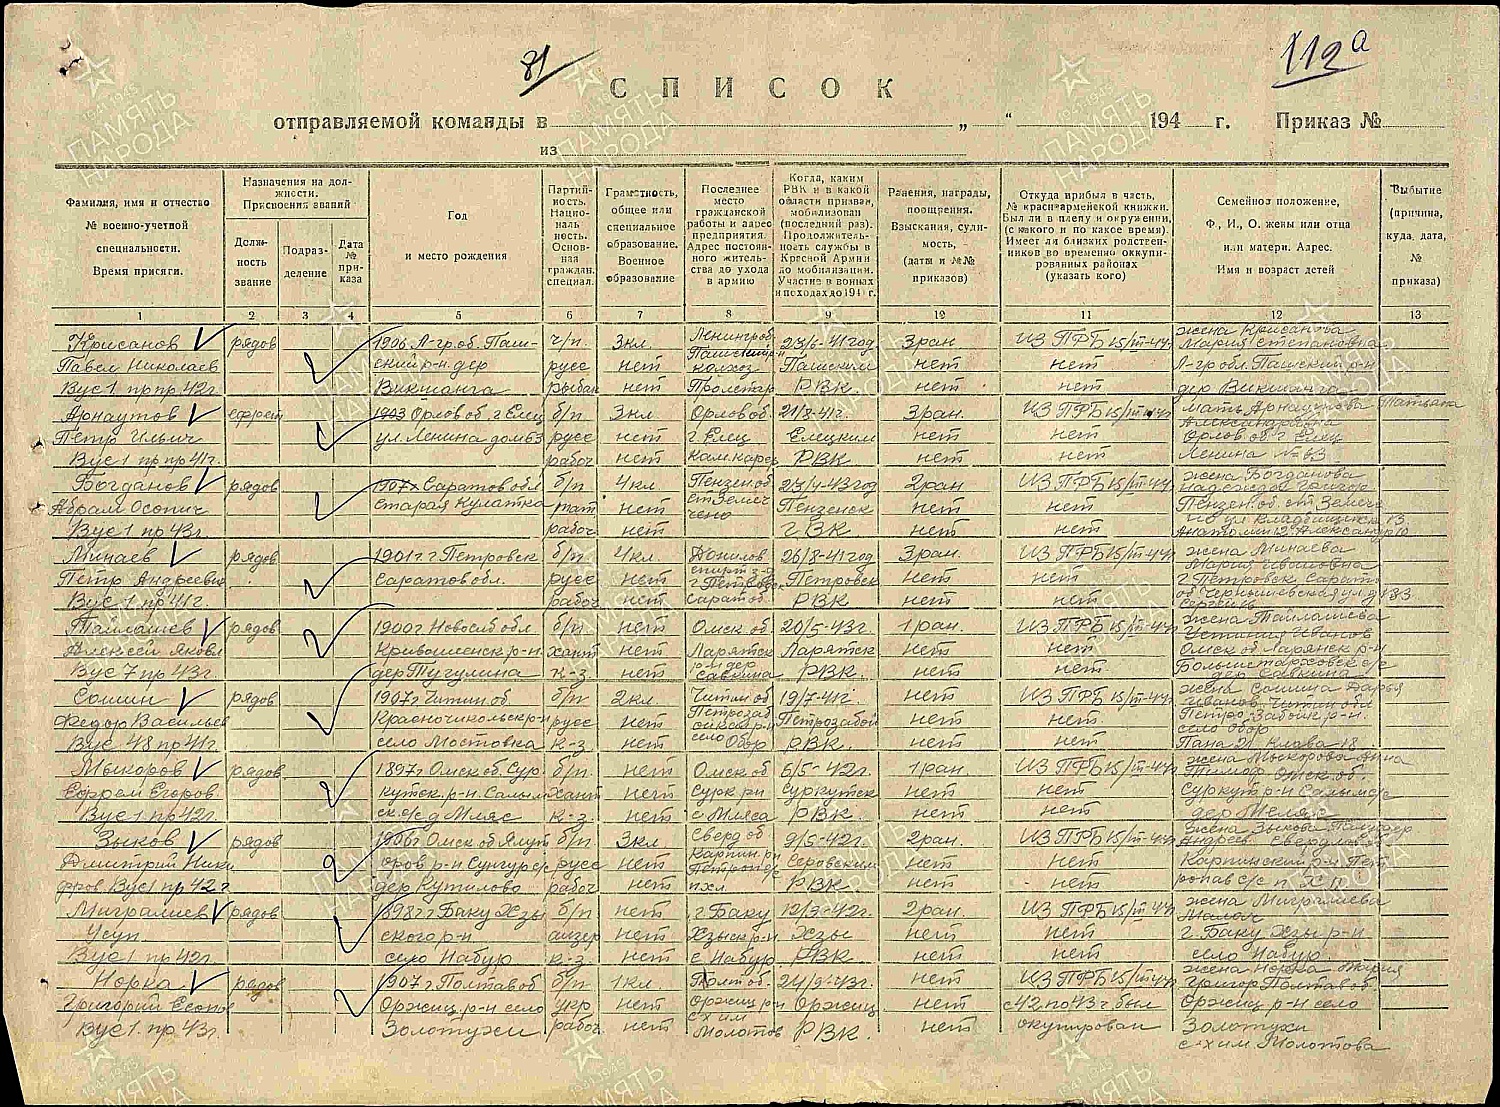 81
112а
СПИСОК
отправляемой команды в „ “ 194 г. Приказ №
из
Фамилия, имя и отчество
№ военно-учетной
специальности.
Время присяги.
Назначения на дол-
жности.
Присвоения званий
Долж-
ность
звание
Подраз-
деление
Дата
№
при-
каза
Год
и место рождения
Партий-
ность.
Нацио-
наль
ность.
Основ-
ная
граждан.
специал.
Грамотность,
общее или
специальное
образование.
Военное
образование
Последнее
место
гражданской
работы и адрес
предприятия.
Адрес постоян-
ного житель-
ства до ухода
в армию
Когда, каким
РВК и в какой
области призван,
мобилизован
(последний раз).
Продолжитель-
ность службы в
Красной Армии
до мобилизации.
Участие в воинах
и походах до 194 г.
Ранения, награды,
поощрения.
Взыскания, суди-
мость,
(даты и №№
приказов)
Откуда прибыл в часть,
№ красноармейской книжки.
Был ли в плену и окружении,
(с какого и по какое время).
Имеет ли близких родствен-
ников во временно оккупи-
рованных районах
(указать кого)
Семейное положение,
Ф., И., О. жены или отца
или матери. Адрес.
Имя и возраст детей
Выбытие
(причина,
куда, дата,
№
приказа)
1 2 3 4 5 6 7 8 9 10 11 12 13
Крисанов рядов 1906 Л-гр.об. Паш- ч/п. 3кл. Ленингр об. 23/6-41 год 3ран. ИЗ ПРБ 15/III-44г жена Крисанова
Мария Степановна
Павел Николаев ский р-н дер русс нет Пашский р-н Пашским нет нет Л-гр обл. Пашский р-н
Вус 1 пр пр 42г. Викшанга рыбак нет колхоз Пролетар РВК нет нет дер Викшанга
Арнаутов ефрейт 1903 Орлов об. г Елец б/п 3кл. Орлов об. 21/8-41г. 3ран. ИЗ ПРБ 15/III-44г мать Арнаутова Татьяна
Александровна
Петр Ильич ул. Ленина дом 63 русс нет г. Елец Елецким нет нет Орлов. об г Елец
Вус 1 пр пр 41г. рабоч нет РВК нет нет Ленина № 63
Богданов рядов 1907г Саратов обл б/п 4кл. Пензен. об 23/4-43 год 2ран ИЗ ПРБ 15/III-44г жена Богданова
Абрам Осопич Старая Кулатка тат нет ст Земет Пензенск нет нет Пензен. об. ст Земет
чено
Вус 1 пр 43г. рабоч нет ГВК нет нет ул Кладбищенск 13
Анатолий 12 Александр 10
Минаев рядов 1901г г Петровск б/п 4кл. Данилов 26/8-41 год 3ран. ИЗ ПРБ 15/III-44г жена Минаева
Мария Ивановна
Петр Андреевич Саратов обл. русс нет спирт з-д г Петровск Петровск нет нет г Петровск Сарато
Вус 1 пр 41г. рабоч нет Сарат об. РВК нет нет об Чернышевская ул. д 133
Сергей
Тайлашев рядов 1900г Новосиб обл б/п нет Омск об. 20/5-43г. 1ран. ИЗ ПРБ 15/III-44г жена Тайлашева
Устиния Иванов
Алексей Яковл Кривошеинск р-н хант нет Ларятск Ларятск нет нет Омск об Ларянск р-н
Вус 7 пр 43г. дер Тугулина к-з. нет р-н дер Савкина РВК. нет нет. Большетарховск с/с
дер Савкина
Сошин рядов 1907г Читин об б/п 2кл. Читин об 19/7-41г. нет ИЗ ПРБ 15/III-44г жена Сошина Дарья
Иванов Читин обл
Федор Васильев Красночикойск р-н русс нет Петрозаб Петрозабой нет нет Петро. Забойк р-н.
Вус 48 пр 41г. село Мостовка к-з нет село Обор РВК. нет нет село Обор
Пана 21 Клава 18
Мыкоров рядов 1897г Омск об. Сур- б/п. нет Омск об 6/5-42г. 1ран. ИЗ ПРБ 15/III-44г жена Мыкорова Анна
Тимоф Омск. об.
Ефрем Егоров кутск. р-н. Салым хант нет Сурк р-н Суркутск нет нет Суркут р-н Салым с/с
Вус 1 пр 42г. ск. с/с д Мляс к-з. нет с Мляса РВК нет нет дер Меляс
Зыков рядов 1906г Омск об Ялут б/п 3кл Сверд об 9/5-42г. 2ран. ИЗ ПРБ 15/III-44г жена Зыкова
Андреев Свердлов об
Дмитрий Ники оров р-н Сунгур с/с русс нет Карпин. р-н Серовским нет нет Карпинский р-н Пет
фров. Вус 1 пр 42г дер Кутилово рабоч нет Петроп с/с РВК нет нет ропав с/с п
Мигралиев рядов 1898г г Баку Хзы б/п нет г. Баку 12/3-42г. 2ран. ИЗ ПРБ 15/III-44г жена Мигралиева
Усуп ского р-н азер нет Хзыск р-н Хзы нет нет г. Баку Хзы р-н
Вус 1 пр 42г. село Набур к-з. нет с. Набур РВК. нет нет село Набур.
Норка рядов 1907г Полтав об б/п 1кл. Полт об. 24/9-43г. нет ИЗ ПРБ 15/III-44г жена Норка Мария
Григор Полтав об.
Григорий Есопов Оржиц. р-н село укр. нет Оржиц р-н Оржиц нет с 42 по 43г был Оржиц р-н село
Вус 1. пр 43г. Золотухи рабоч нет с-х им Молотов РВК. нет окупирован Золотухи
с-х им. Молотова